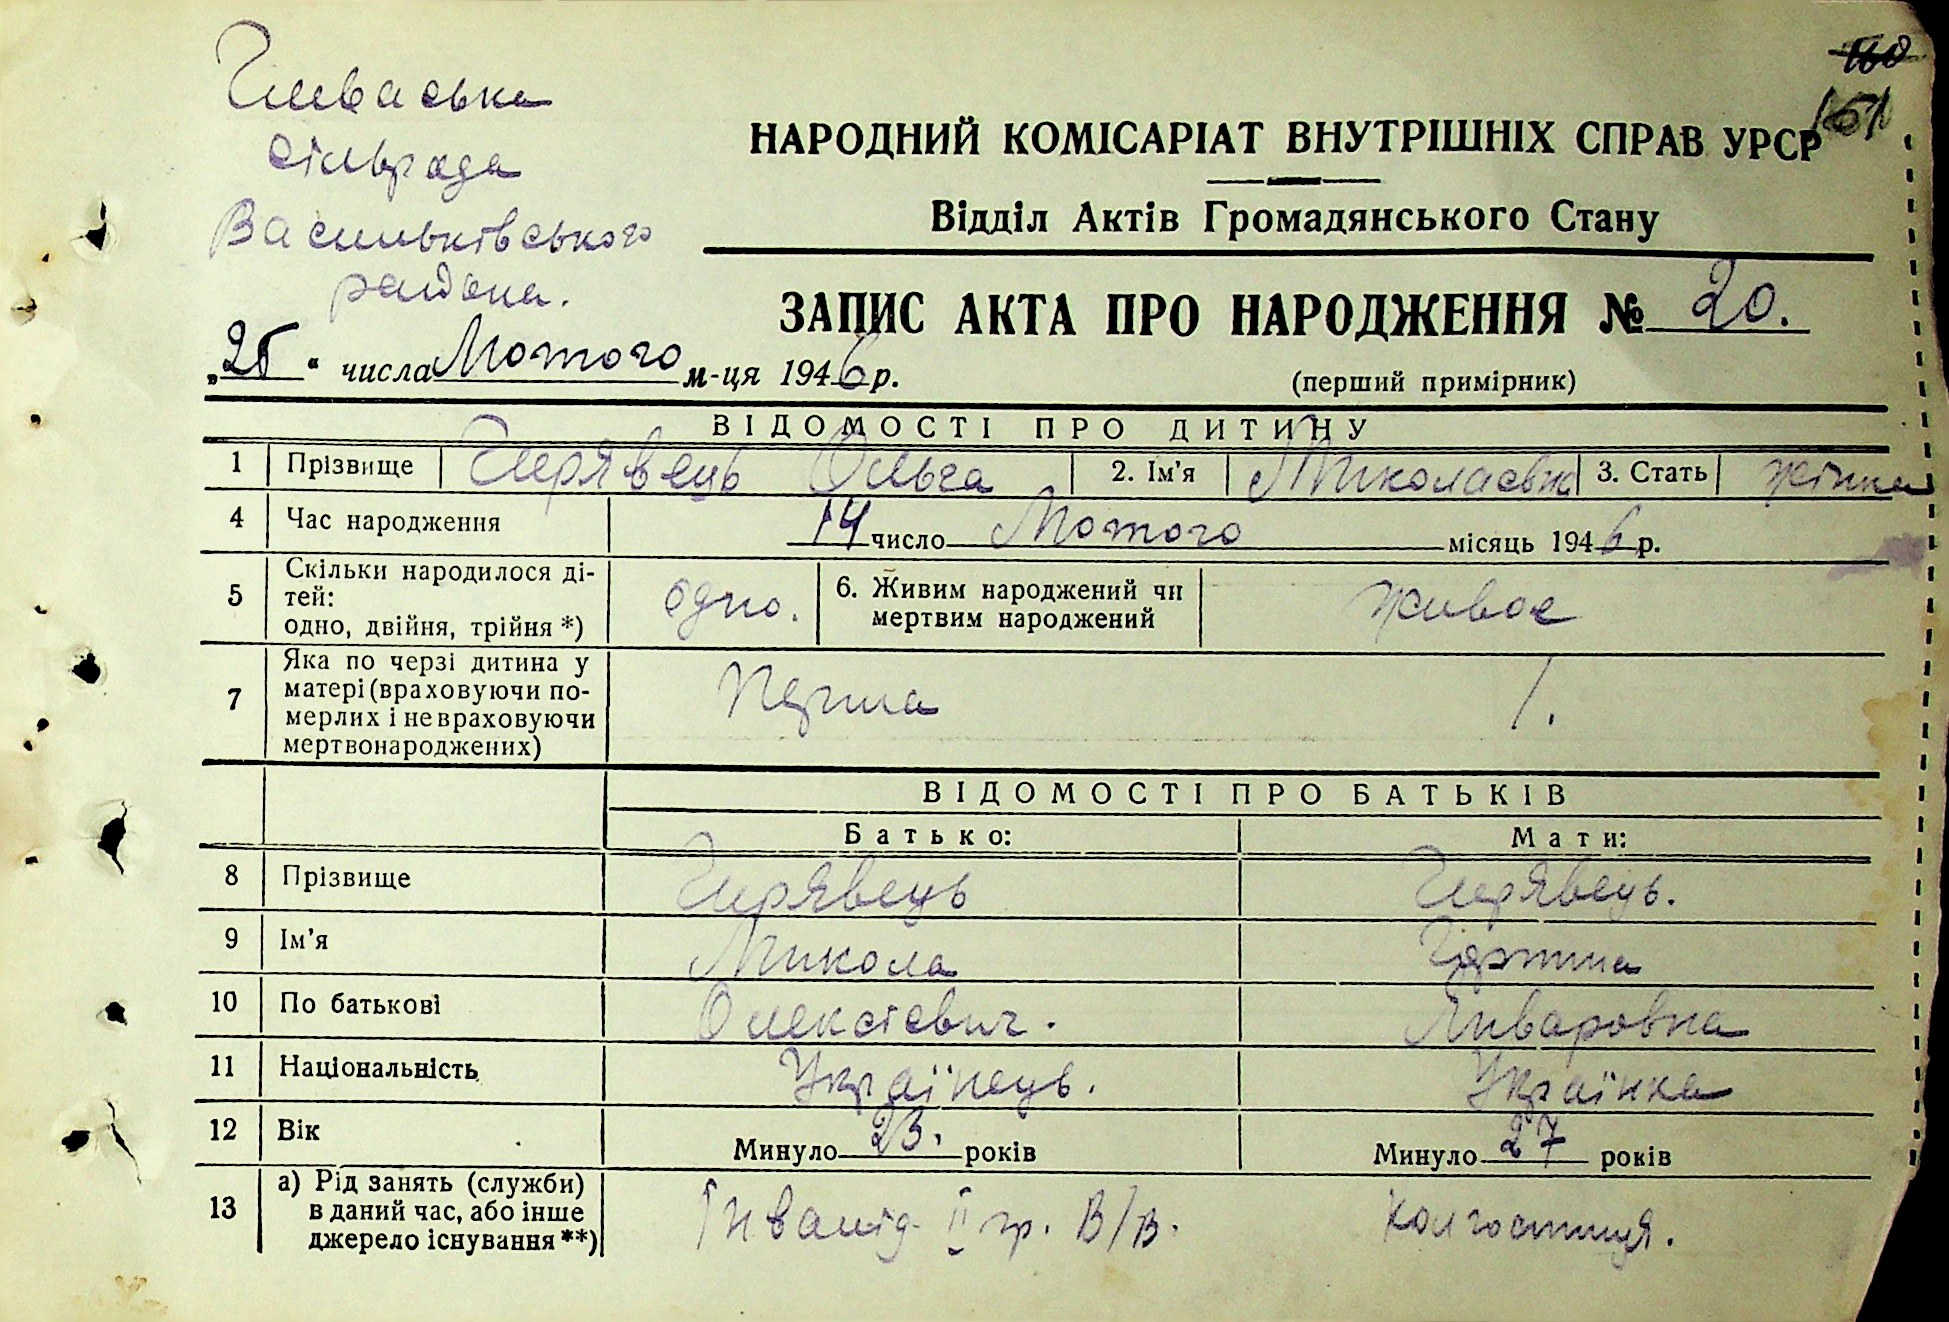 168
151
Гливаська
сільрада
Васильківського
района.
НАРОДНИЙ КОМІСАРІАТ ВНУТРІШНІХ СПРАВ УРСР
Відділ Актів Громадянського Стану
ЗАПИС АКТА ПРО НАРОДЖЕННЯ № 20.
„25“ числа Лютого м-ця 1946 р.
(перший примірник)
ВІДОМОСТІ ПРО ДИТИНУ
1 Прізвище Ольга 2. Ім’я Миколаєвна 3. Стать жінка
4 Час народження 14 число Лютого місяць 1946 р.
5 Скільки народилося ді-
тей:
одно, двійня, трійня *) одно. 6. Живим народжений чи
мертвим народжений живое
7 Яка по черзі дитина у
матері (враховуючи по-
мерлих і не враховуючи
мертвонароджених) Перша 1.
ВІДОМОСТІ ПРО БАТЬКІВ
Батько: Мати:
8 Прізвище
9 Ім’я Микола
10 По батькові Олексієвич.
11 Національність Українець. Українка
12 Вік Минуло 23. років Минуло 27 років
13 а) Рід занять (служби)
в даний час, або інше
джерело існування **) Інвалід II гр. В/В. Колгостниця.